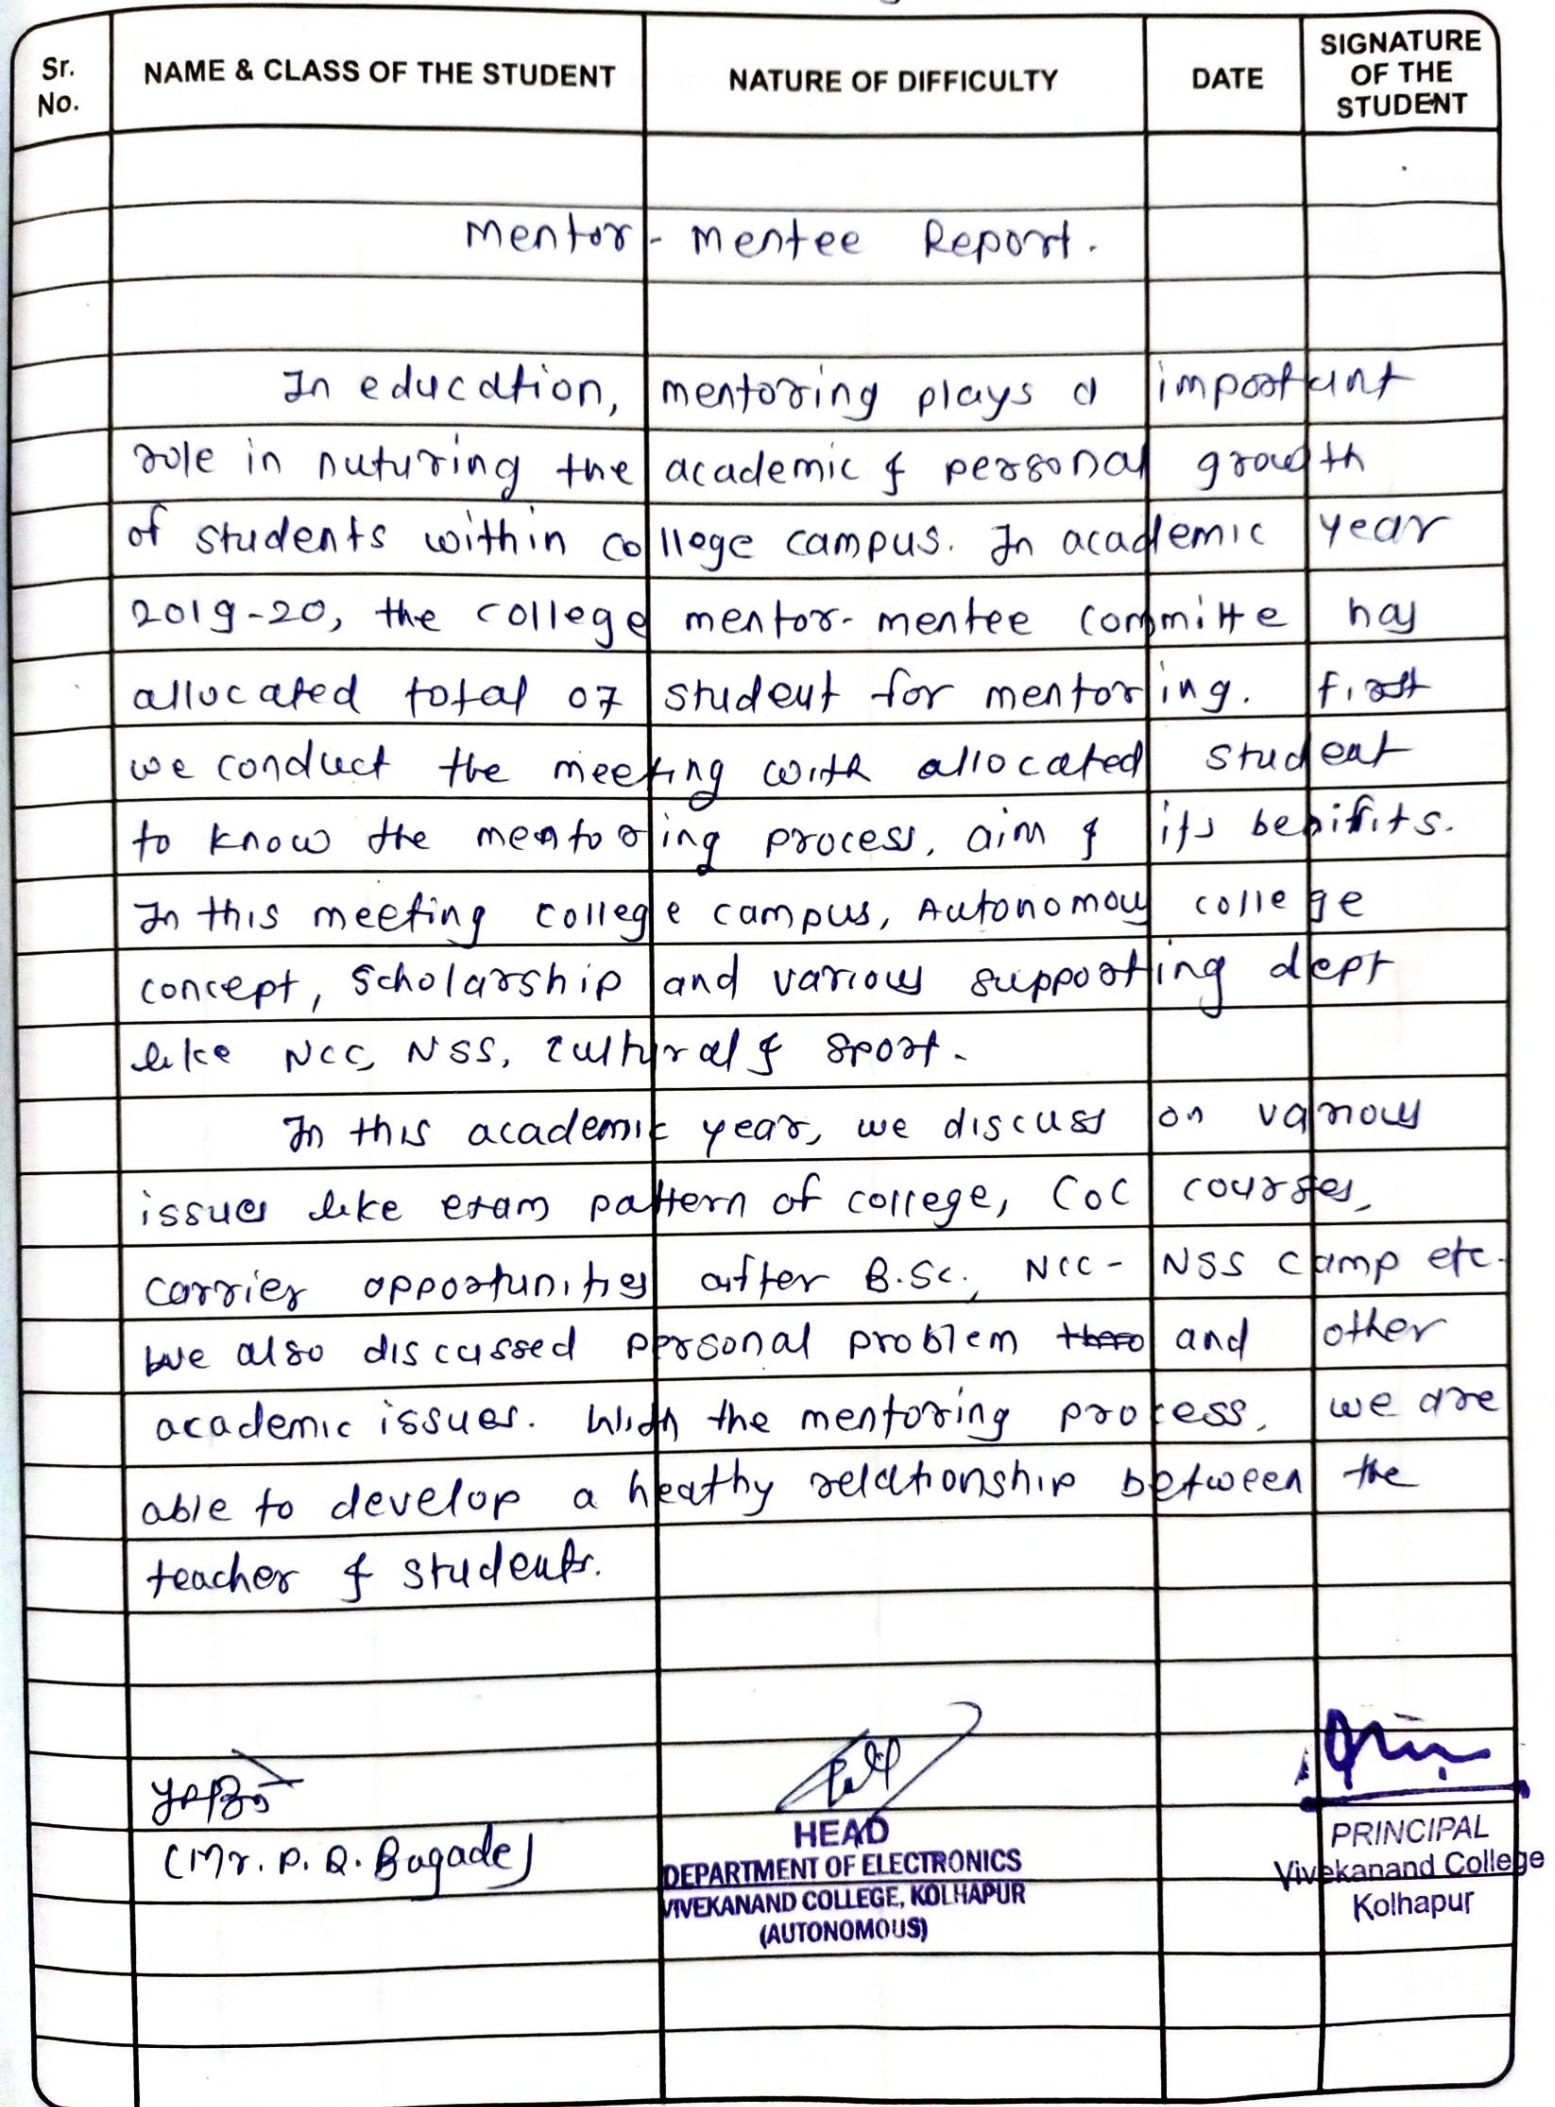 Sr. No.
NAME & CLASS OF THE STUDENT
NATURE OF DIFFICULTY
DATE
SIGNATURE OF THE STUDENT
Mentor - Mentee Report.
In education, mentoring plays a important
role in nuturing the academic & personal growth
of students within college campus. In academic year
2019-20, the college mentor-mentee committe has
allocated total 07 student for mentoring. first
we conduct the meeting with allocated student
to know the mentoring process, aim & its benifits.
In this meeting college campus, Autonomous college
concept, Scholarship and various supporting dept
like NCC, NSS, cultural & sport.
In this academic year, we discuss on various
issues like exam pattern of college, COC courses,
carrier opportunities after B.Sc., NCC - NSS camp etc.
We also discussed personal problem and other
academic issues. With the mentoring process, we are
able to develop a heathy relationship between the
teacher & students.
(Mr. P. R. Bagade)
HEAD
DEPARTMENT OF ELECTRONICS
VIVEKANAND COLLEGE, KOLHAPUR
(AUTONOMOUS)
PRINCIPAL
Vivekanand College
Kolhapur